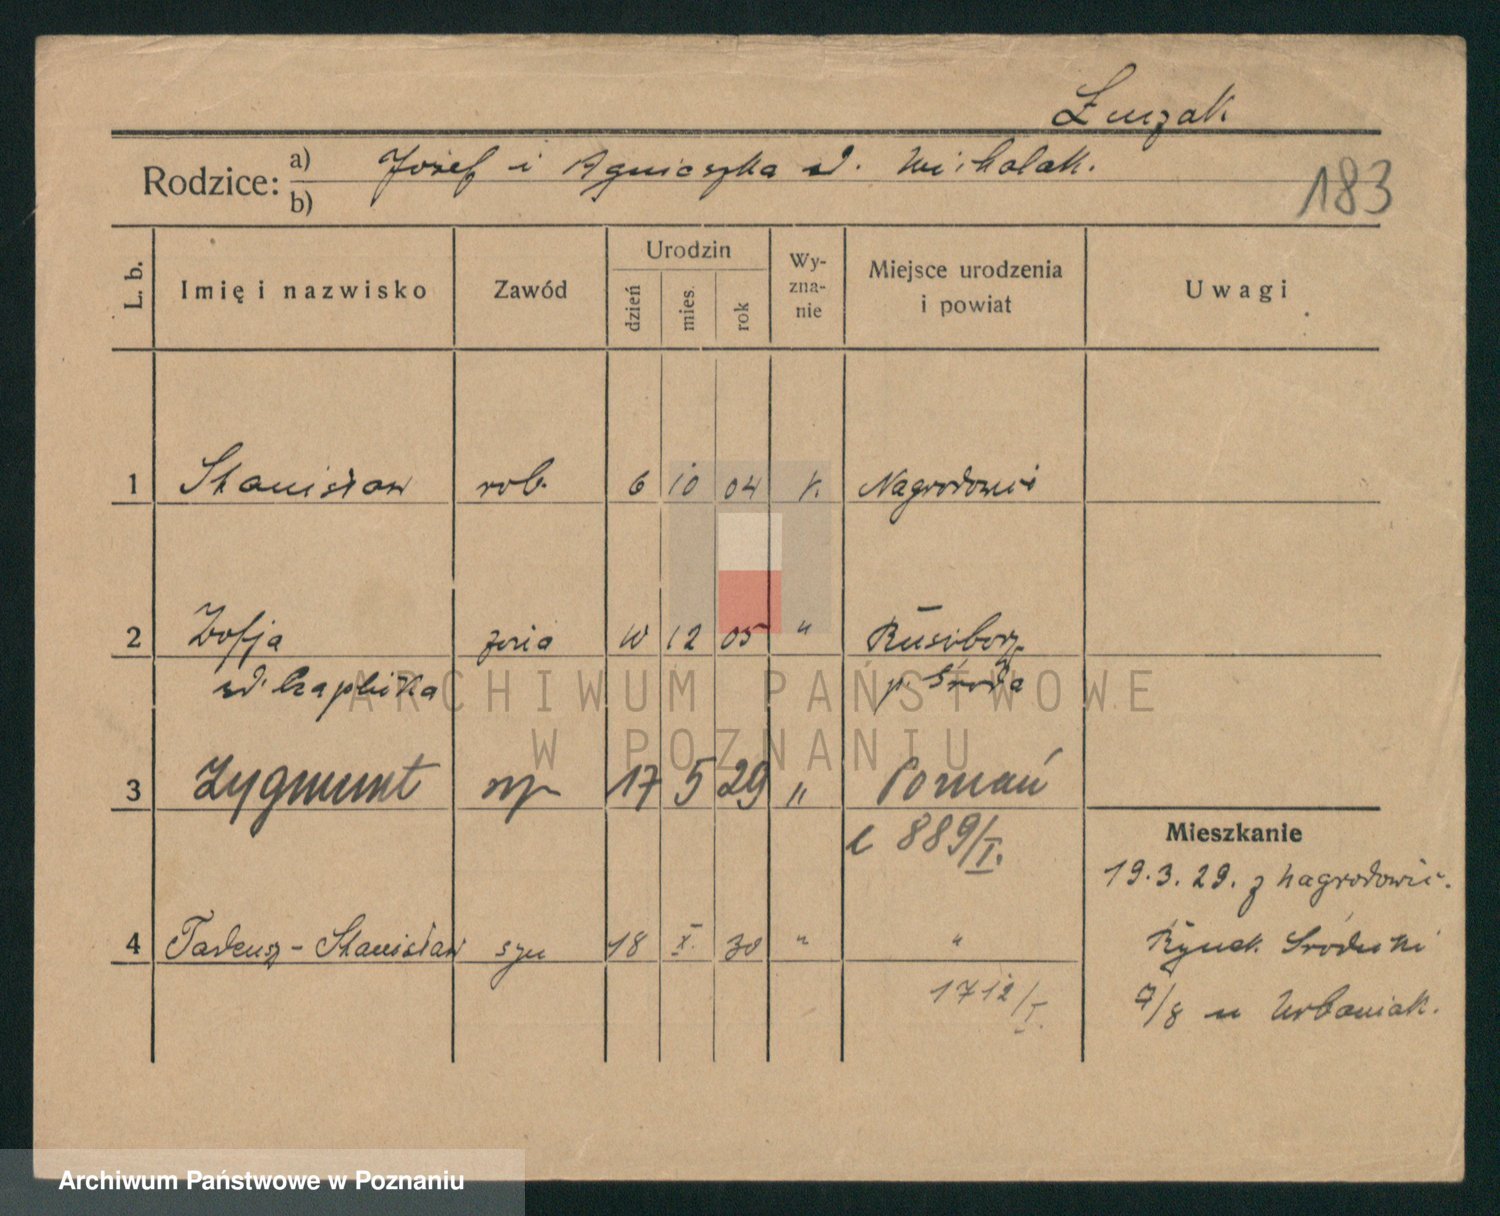 Łuczak
Rodzice:
a) Józef i Agnieszka d. Michalak.
b)
183
L. b.
Imię i nazwisko
Zawód
Urodzin
dzień
mies.
rok
Wy-
zna-
nie
Miejsce urodzenia
i powiat
Uwagi
1 Stanisław rob. 6 10 04 k. Nagradowic
2 Zofja żona 10 12 05 " Rusiborz
d. Czaplicka p. Środa
3 Zygmunt syn 17 5 29 " Poznań
l 889/I.
Mieszkanie
19.3.29. z Nagradowic.
4 Tadeusz - Stanisław syn 18 X. 30 " "
Rynek Śródecki
1712/I.
7/8 u Urbaniak.
ARCHIWUM PAŃSTWOWE
W POZNANIU
Archiwum Państwowe w Poznaniu